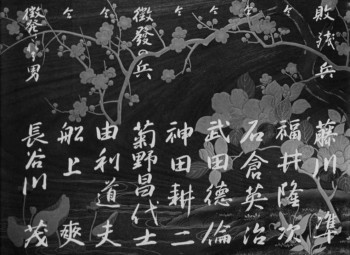 敗残兵 藤川 準
仝 福井隆次
仝 石倉英治
仝 武田徳倫
仝 神田耕二
徴發の兵 菊野昌代士
仝 由利道夫
仝 船上 爽
徴発の男 長谷川 茂